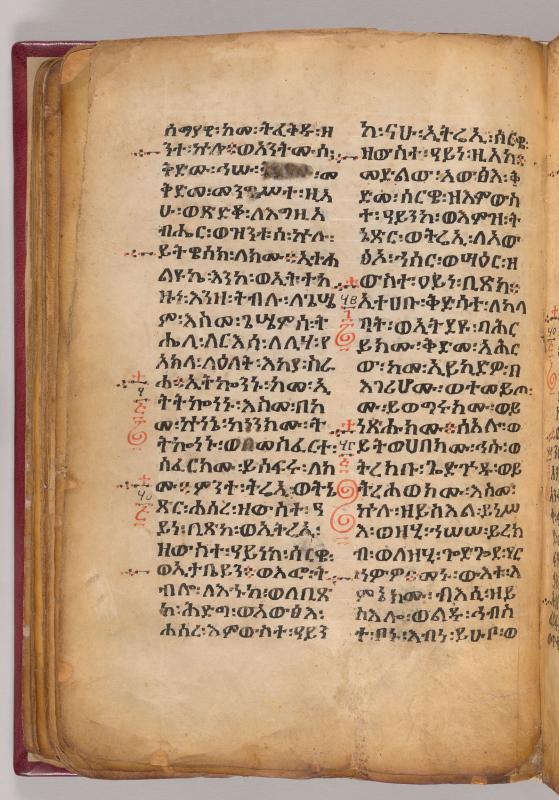 ሰማያዊ፡ከመ፡ትፈቅዱ፡ዘ
ንተ፡ኵሎ፡ወአንትሙ፡ሰ፡
ቅድሙ፡ኀሡ፡ መ
ቅድመ፡መንግሥተ፡ዚአ
ሁ፡ወጽድቆ፡ለእግዚአ
ብሔር፡ወዝንቱ፡ሰ፡ኵሉ፡
ይትዌሰክ፡ለክሙ፡፡ኢትሐ
ልዩኬ፡እንከ፡ወኢትተክ
ዙ፡እንዘ፡ትብሉ፡ለጌሤ
ም፡እስመ፡ጌሤምሰ፡ት
ሔሊ፡ለርእሳ፡ለሊሃ፡የ
አክላ፡ለዕለት፡እከያ፡ስራ
ሐ፡፡ኢትኰንኑ፡ከመ፡ኢ
ትትኰነኑ፡እስመ፡በከ
መ፡ኵነኔ፡ኰነንክሙ፡ት
ትኰነኑ፡ወበመስፈርት፡
ሰፈርክሙ፡ይሰፍሩ፡ለክ
ሙ፡፡ምንተ፡ትሬኢ፡ወትኔ
ጽር፡ሐሰረ፡ዘውስተ፡ዓ
ይነ፡ቢጽከ፡ወኢትሬኢ፡
ዘውስተ፡ዓይንከ፡ሰርዌ፡
ወኢትቤይን፡፡ወእፎ፡ት
ብሎ፡ለእኁከ፡ወለቢጽ
ከ፡ኅድግ፡ወአውፅእ፡
ሐሰረ፡እምውስተ፡ዓይን
ከ፡ናሁ፡ኢትሬኢ፡ሰርዌ፡
ዘውስተ፡ዓይነ፡ዚአከ፡፡
መድልው፡አውፅእ፡ቅ
ድመ፡ሰርዌ፡ዘእምውስ
ተ፡ዓይንከ፡ወእምዝ፡ት
ኔጽር፡ወትሬኢ፡ለአው
ፅኦ፡ኀሰር፡ወሣዕር፡ዘ
ውስተ፡ዐይነ፡ቢጽከ፡፡
ኢተሀቡ፡ቅድሳተ፡ለከላ
ባት፡ወኢትደዩ፡ባሕር
ይክሙ፡ቅድመ፡አሕር
ው፡ከመ፡ኢይኪድዎ፡በ
እገሪሆሙ፡ወተመይጦ፡
ሙ፡ይወግሩክሙ፡ወይ
ነጽሑክሙ፡፡ሰአሉ፡ወ
ይትወሀበክሙ፡ኅሡ፡ወ
ትረክቡ፡ጐድጕዱ፡ወይ
ትረሐወክሙ፡እስመ፡
ኵሉ፡ዘይስእል፡ይነሥ
እ፡ወዘሂ፡ኀሠሠ፡ይረክ
ብ፡ወለዘሂ፡ጐድጐደ፡ያር
ኅውዎ፡፡መኑ፡ውእቱ፡እ
ምኔክሙ፡ብእሲ፡ዘይ
ስእሎ፡ወልዱ፡ኅብስ
ተ፡ቦኑ፡እብነ፡ይሁቦ፡ወ